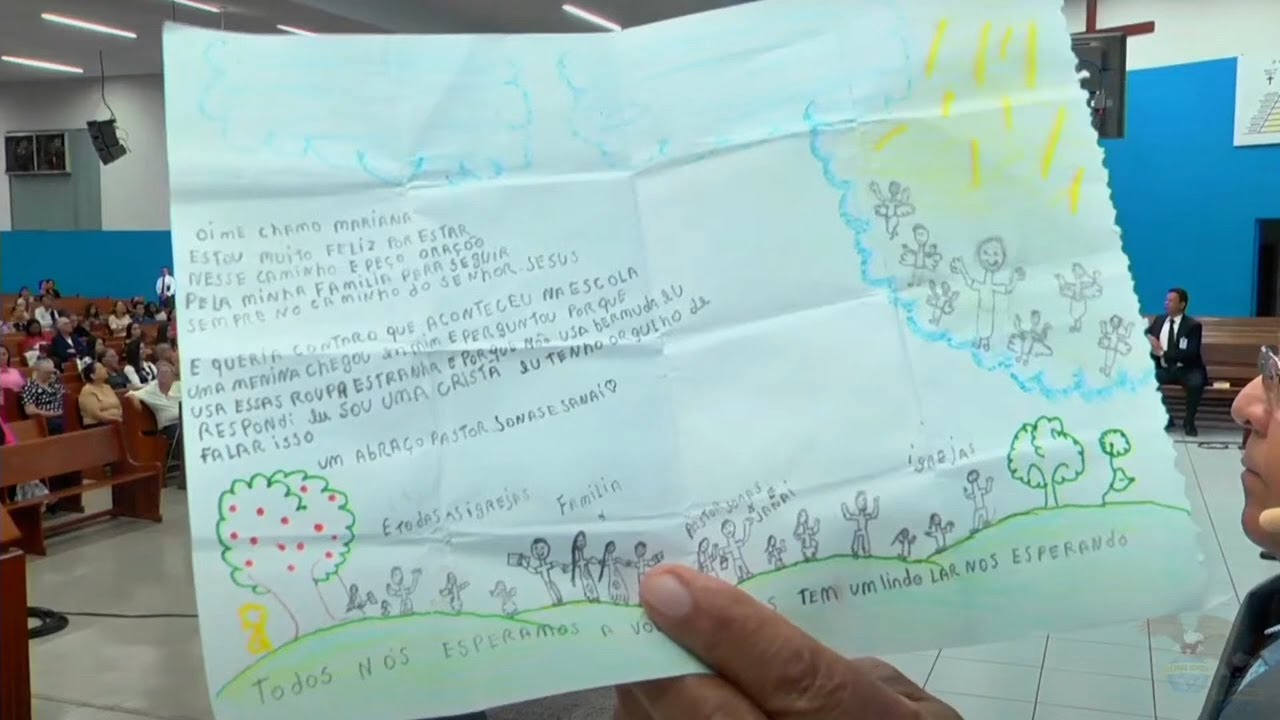 OI ME CHAMO MARIANA
ESTOU MUITO FELIZ POR ESTAR
NESSE CAMINHO E PEÇO ORAÇÃO
PELA MINHA FAMILIA PARA SEGUIR
SEMPRE NO CAMINHO DO SENHOR JESUS
E QUERIA CONTARO QUE ACONTECEU NA ESCOLA
UMA MENINA CHEGOU EM MIM E PERGUNTOU PORQUE
USA ESSAS ROUPA ESTRANHA E PORQUE NÃO USA BERMUDA EU
RESPONDI EU SOU UMA CRISTÃ EU TENHO ORGULHO de
FALAR ISSO
UM ABRAÇO PASTOR JONAS E SANAI♡
E TODAS AS IGREJAS
FAMILIA
PASTOR JONAS
E
JANAI
iGREJAS
TODOS NÓS ESPERAMOS A TEM UM lindo LAR NOS ESPERANDO